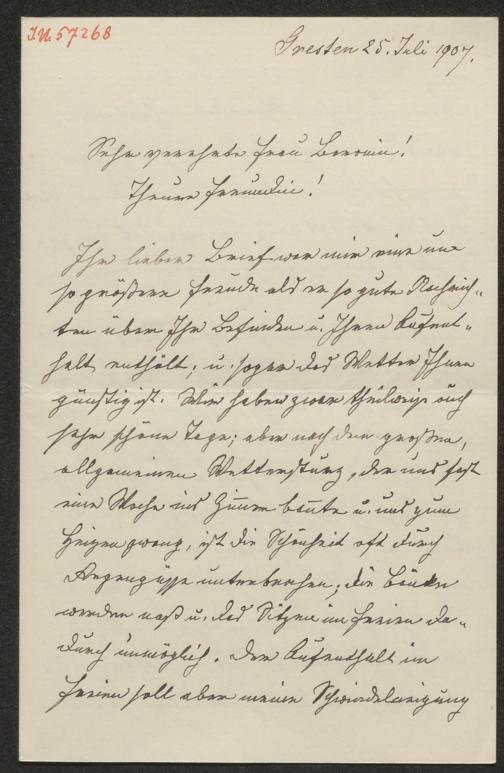 J.N. 57268
Gresten 25. Juli 1907.
Sehr verehrte Frau Baronin!
Theure Freundin!
Ihr lieber Brief war mir eine um
so größere Freude als er so gute Nachrich-
ten über Ihr Befinden u. Ihren Aufent-
halt enthält; u. sogar das Wetter Ihnen
günstig ist. Wir haben zwar theilweise auch
sehr schöne Tage; aber nach dem großen,
allgemeinen Wettersturz, der uns fast
eine Woche ins Zimmer bannte u. uns zum
Heizen zwang, ist die Schönheit oft durch
Regengüsse unterbrochen; die Bänke
werden naß u. das Sitzen im Freien da-
durch unmöglich. Der Aufenthalt im
Freien soll aber meine Schwindelneigung